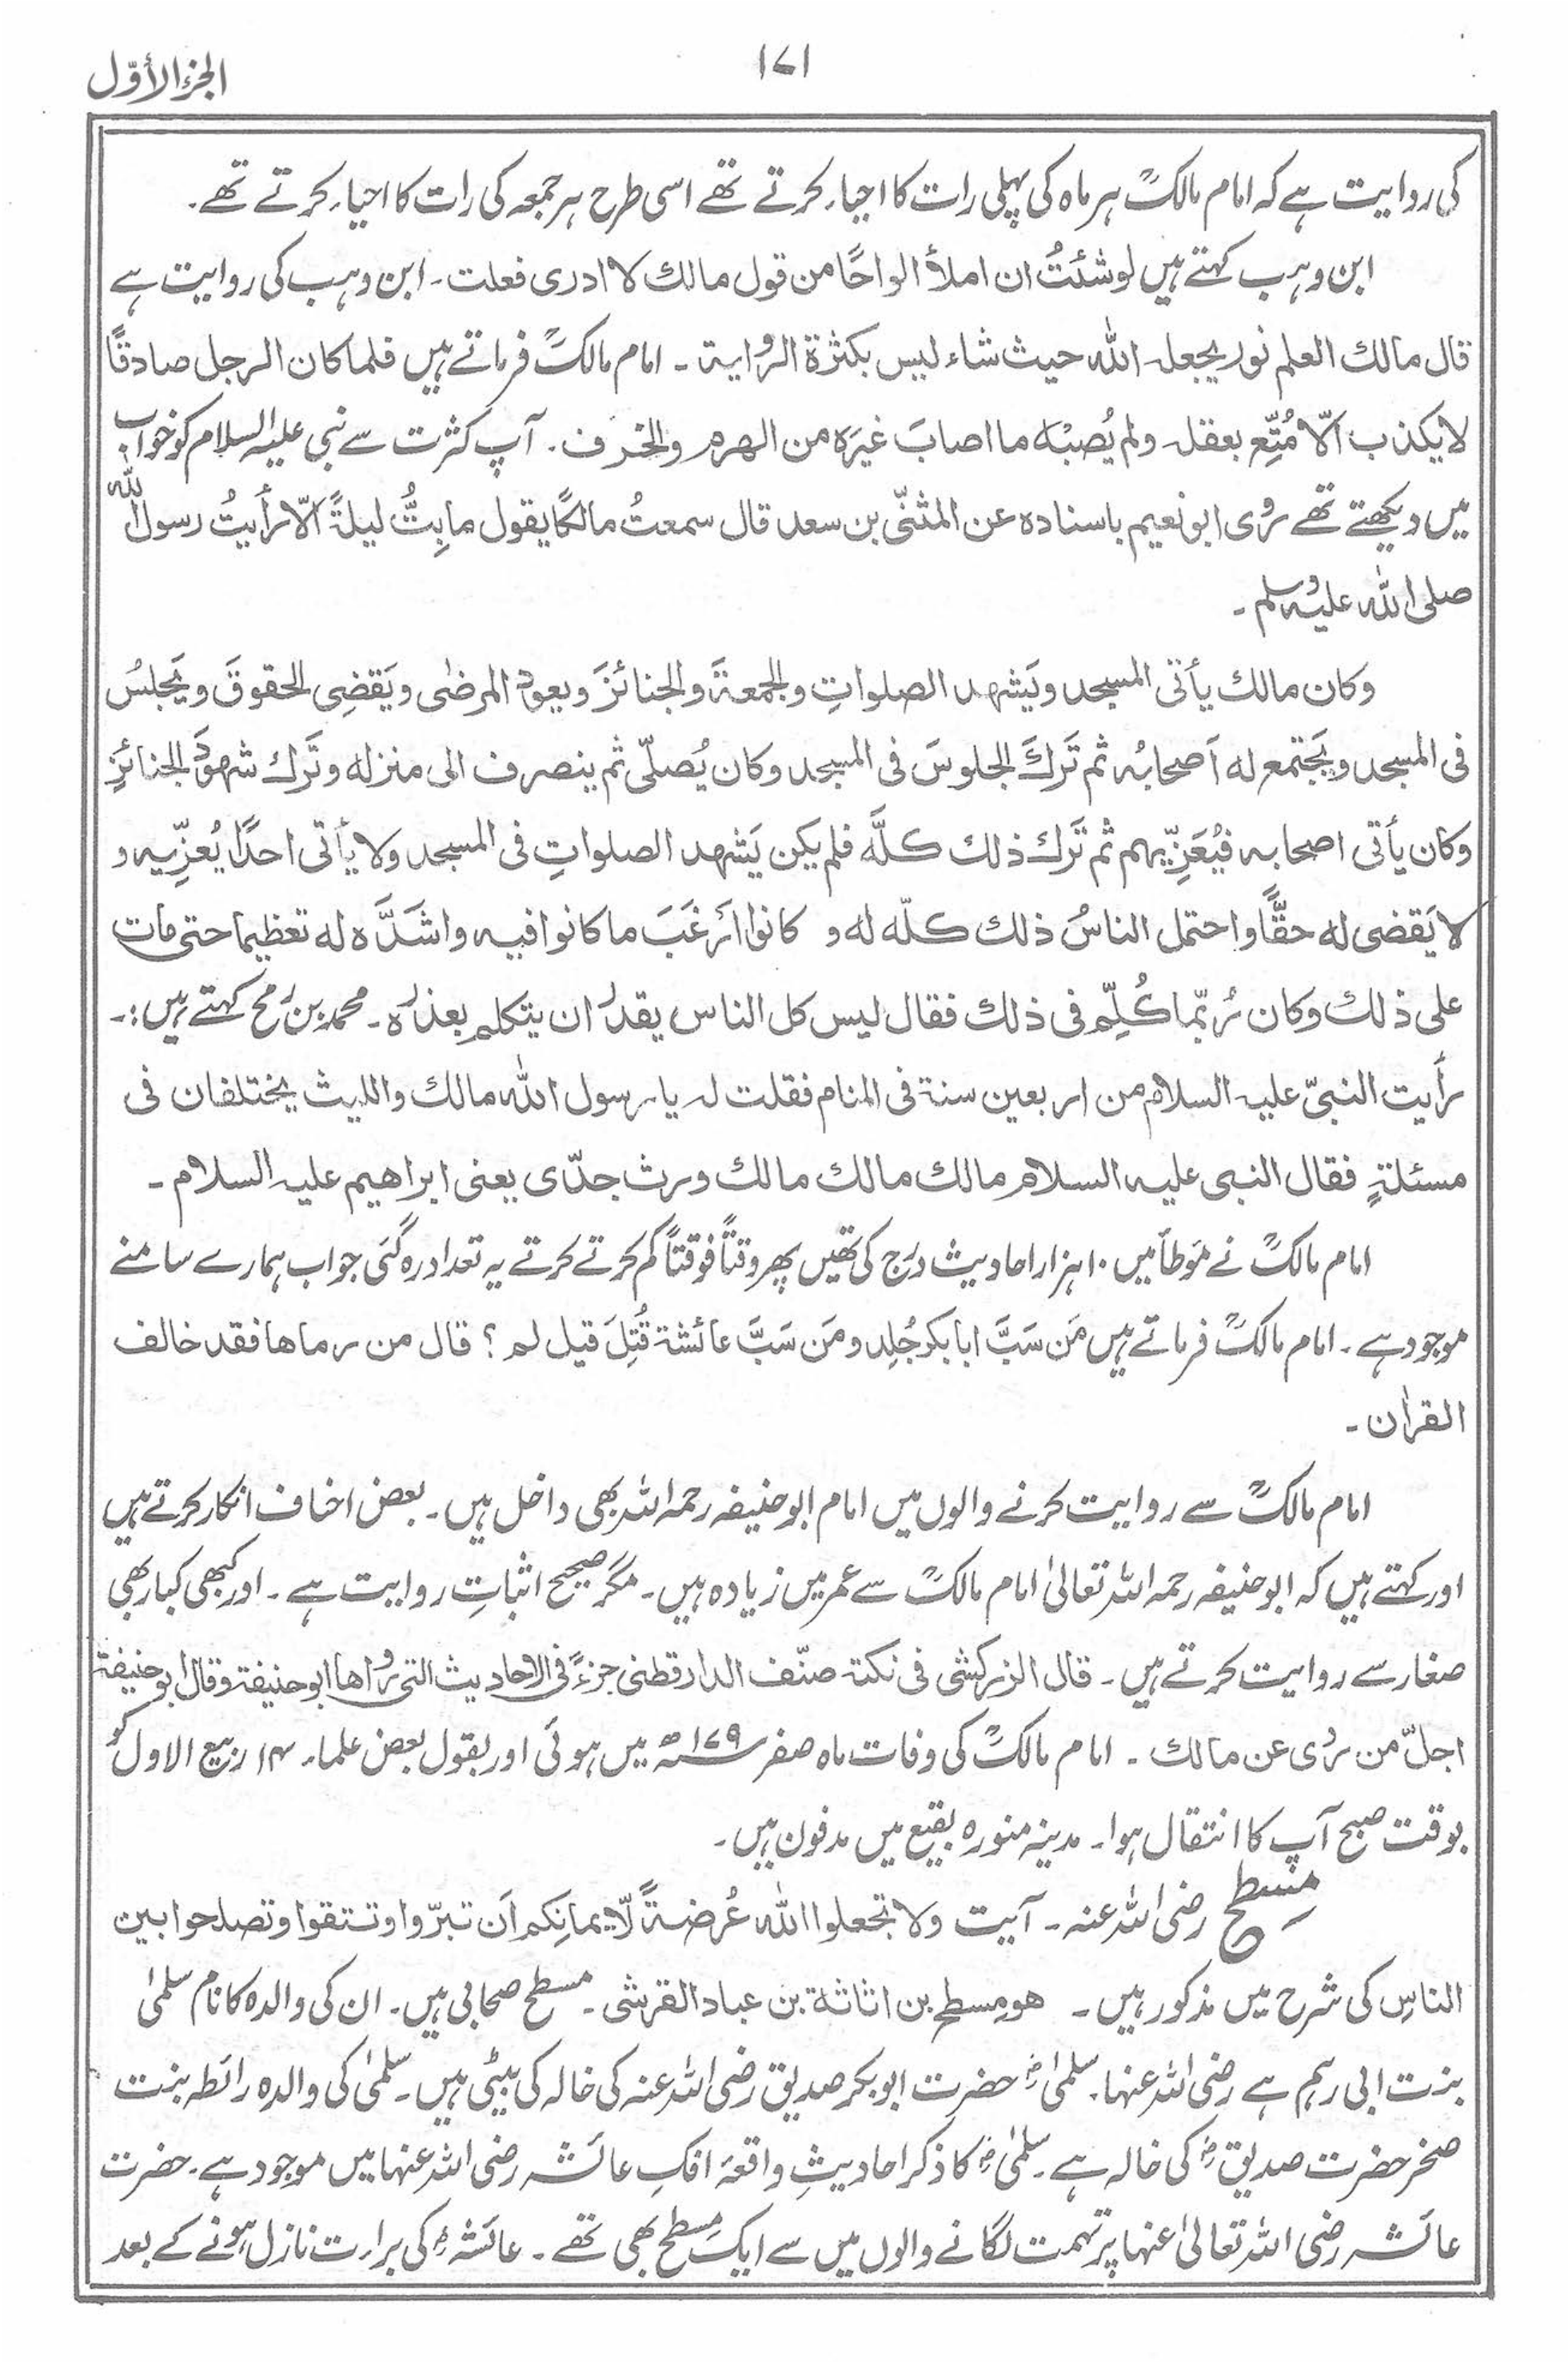 الجزء الأوّل
۱۷۱
کی روایت ہے کہ امام مالکؒ ہر ماہ کی پہلی رات کا احیاء کرتے تھے اسی طرح ہر جمعہ کی رات کا احیاء کرتے تھے۔
ابن وہب کہتے ہیں لوشئتُ ان املأ الواحًا من قول مالك لا ادری فعلت۔ ابن وہب کی روایت ہے
قال مالك العلم نور یجعلہ اللہ حیث شاء لیس بکثرۃ الروایۃ۔ امام مالکؒ فرماتے ہیں فلما کان الرجل صادقًا
لا یکذب الّا مُتِّع بعقلہ ولم یُصبْہ ما اصابَ غیرَہ من الھرم والخرف۔ آپ کثرت سے نبی علیہ السلام کو خواب
میں دیکھتے تھے رُوی ابو نعیم باسنادہ عن المثنّی بن سعد قال سمعتُ مالکًا یقول ما بِتُّ لیلۃً الّا رأیتُ رسول اللہ
صلی اللہ علیہ وسلم۔
وکان مالك یأتی المسجد ویَشھد الصلواتِ والجمعۃَ والجنائزَ ویعود المرضٰی ویَقضِی الحقوقَ ویَجلسُ
فی المسجد ویَجتمع لہ اَصحابُہ ثم تَركَ الجلوسَ فی المسجد وکان یُصلّی ثم ینصرف الی منزلہ وتَرك شھودَ الجنائزِ
وکان یأتی اصحابہ فیُعَزِّیھم ثم تَرك ذلك کلَّہ فلم یکن یَشھد الصلواتِ فی المسجد ولا یأتی احدًا یُعزِّیہ و
لا یَقضی لہ حقًّا واحتمل الناسُ ذلك کلّہ لہ و کانوا اَرغَبَ ما کانوا فیہ واشَدَّہ لہ تعظیما حتی مات
علی ذلك وکان رُبّما کُلِّم فی ذلك فقال لیس کل الناس یقدر ان یتکلم بعذرہ۔ محمد بن رُمح کہتے ہیں:۔
رأیت النبیّ علیہ السلام من اربعین سنۃ فی المنام فقلت لہ یا رسول اللہ مالك واللیث یختلفان فی
مسئلۃٍ فقال النبی علیہ السلام مالك مالك مالك ورث جدّی یعنی ابراھیم علیہ السلام۔
امام مالکؒ نے مؤطأ میں ۱۰ ہزار احادیث درج کی تھیں پھر وقتًا فوقتًا کم کرتے کرتے یہ تعداد رہ گئی جو اب ہمارے سامنے
موجود ہے۔ امام مالکؒ فرماتے ہیں مَن سَبَّ ابا بکر جُلِد ومَن سَبَّ عائشۃ قُتِلَ قیل لم؟ قال من رماھا فقد خالف
القرآن۔
امام مالکؒ سے روایت کرنے والوں میں امام ابو حنیفہ رحمہ اللہ بھی داخل ہیں۔ بعض احناف انکار کرتے ہیں
اور کہتے ہیں کہ ابو حنیفہ رحمہ اللہ تعالیٰ امام مالکؒ سے عمر میں زیادہ ہیں۔ مگر صحیح اثباتِ روایت ہے۔ اور کبھی کبار بھی
صغار سے روایت کرتے ہیں۔ قال الزرکشی فی نکتۃ صنّف الدارقطنی جزءً فی الاحادیث التی رواھا ابو حنیفۃ وقال ابو حنیفۃ
اجلّ من رَوی عن مالك۔ امام مالکؒ کی وفات ماہ صفر ۱۷۹ھ میں ہوئی اور بقول بعض علماء ۱۴ ربیع الاول کو
بوقت صبح آپ کا انتقال ہوا۔ مدینہ منورہ بقیع میں مدفون ہیں۔
مِسطح رضی اللہ عنہ۔ آیت ولا تجعلوا اللہ عُرضۃً لّایمانِکم اَن تبرّوا وتتقوا وتصلحوا بین
الناس کی شرح میں مذکور ہیں۔ ھو مسطح بن اثاثۃ بن عباد القرشی۔ مسطح صحابی ہیں۔ ان کی والدہ کا نام سلمیٰ
بنت ابی رہم ہے رضی اللہ عنہا۔ سلمیٰؓ حضرت ابو بکر صدیق رضی اللہ عنہ کی خالہ کی بیٹی ہیں۔ سلمیٰ کی والدہ رائطہ بنت
صخر حضرت صدیقؓ کی خالہ ہے۔ سلمیٰؓ کا ذکر احادیثِ واقعہ افکِ عائشہ رضی اللہ عنہا میں موجود ہے۔ حضرت
عائشہ رضی اللہ تعالیٰ عنہا پر تہمت لگانے والوں میں سے ایک مسطح بھی تھے۔ عائشہؓ کی براءت نازل ہونے کے بعد